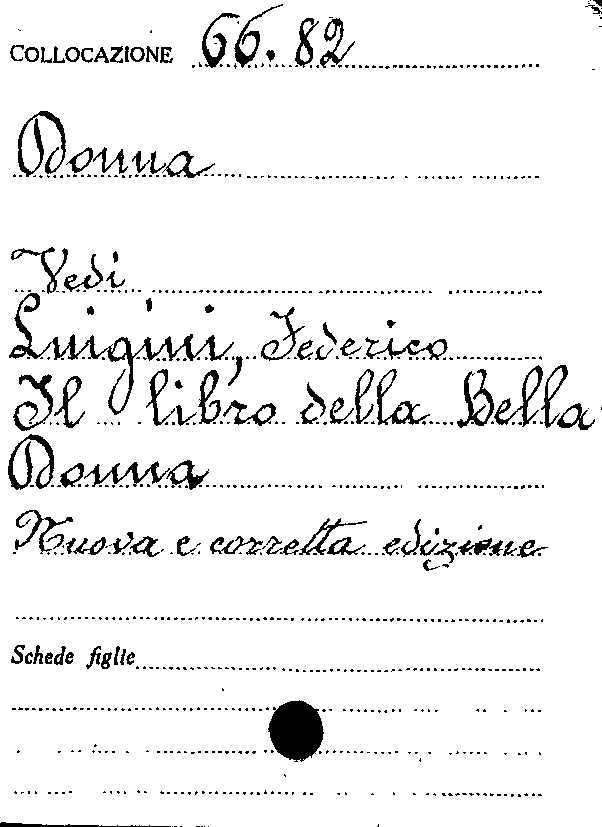 COLLOCAZIONE 66.82
Donna
Vedi
Luigini, Federico
Il libro della Bella
Donna
Nuova e corretta edizione
Schede figlie